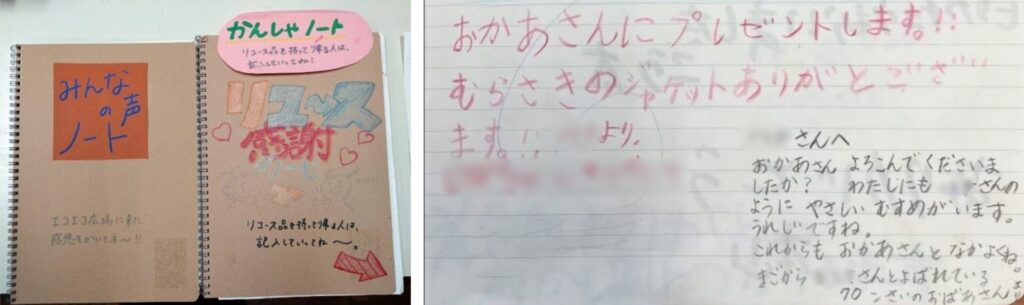 みんな
の声
ノート
エコエコ広場にきた
感想をかいてネ〜!!
かんしゃノート
リユース品を持って帰る人は、
記入していってね!
リユース
感謝
リユース品を持って帰る人は、
記入していってね〜。
おかあさんにプレゼントします!!
むらさきのジャケットありがとござい
ます!!
より。
さんへ
おかあさん よろこんでくださいま
したか? わたしにも さんの
ように やさしい むすめがいます。
うれしいですね。
これからも おかあさんと なかよくね。
まごから さんとよばれている
70こさいのおばあさん より